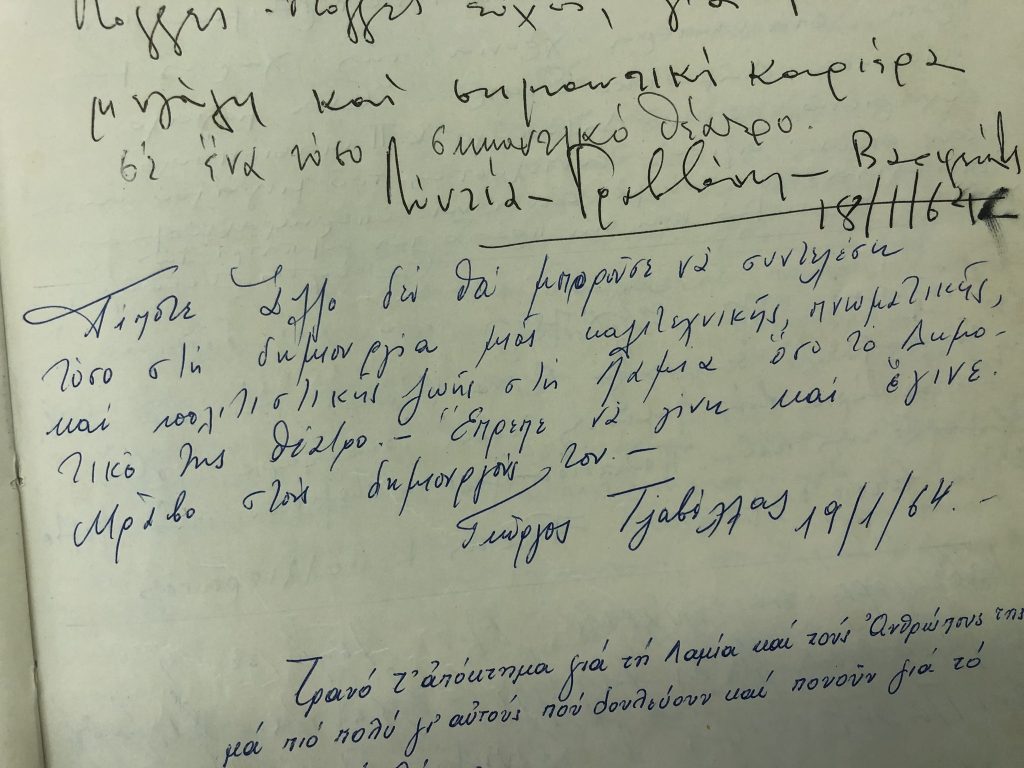 Πολλές - πολλές εὐχές, γιά
μεγάλη καί σημαντική καριέρα
σέ ἕνα τόσο σημαντικό θέατρο.
18/1/64
Τίποτε ἄλλο δέν θά μποροῦσε νά συντελέση
τόσο στή δημιουργία μιᾶς καλιτεχνικῆς, πνευματικῆς,
καί πολιτιστικῆς ζωῆς στή Λαμία ὅσο τό Δημο-
τικό της θέατρο.- Ἔπρεπε νά γίνη καί ἔγινε.
Μπράβο στούς δημιουργούς του.-
Γιῶργος Τζαβέλλας 19/1/64.-
Τρανό τ' ἀπόκτημα γιά τή Λαμία καί τούς Ἀνθρώπους της
μά πιό πολύ γι αὐτούς πού δουλεύουν καί πονοῦν γιά τό